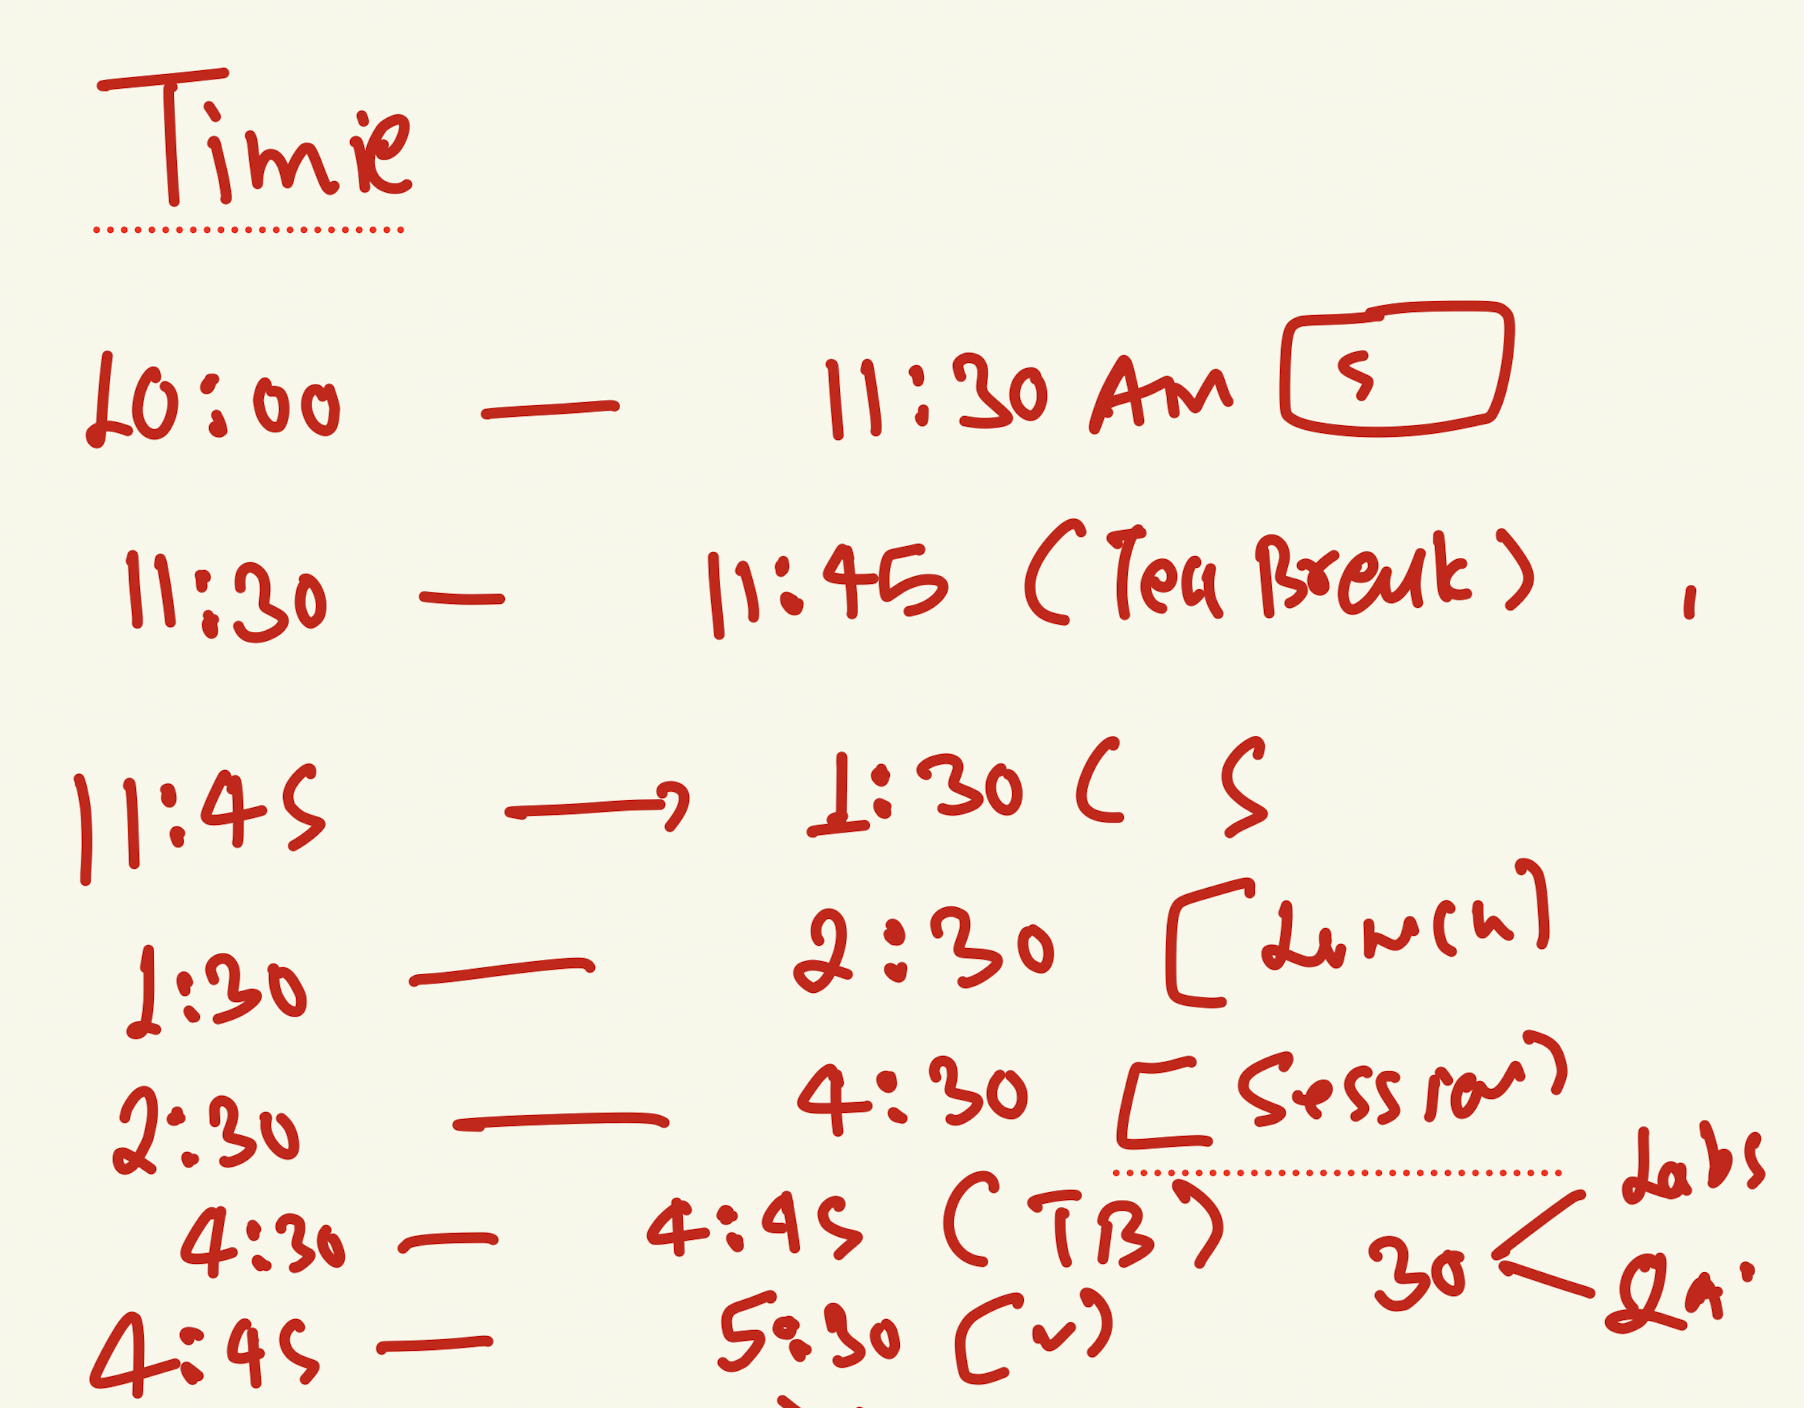 Time
10:00 — 11:30 AM S
11:30 — 11:45 (Tea Break)
11:45 → 1:30 ( S
1:30 — 2:30 [Lunch]
2:30 — 4:30 [Session]
4:30 — 4:45 (TB)
4:45 — 5:30 (✓)
30 < Labs
QA